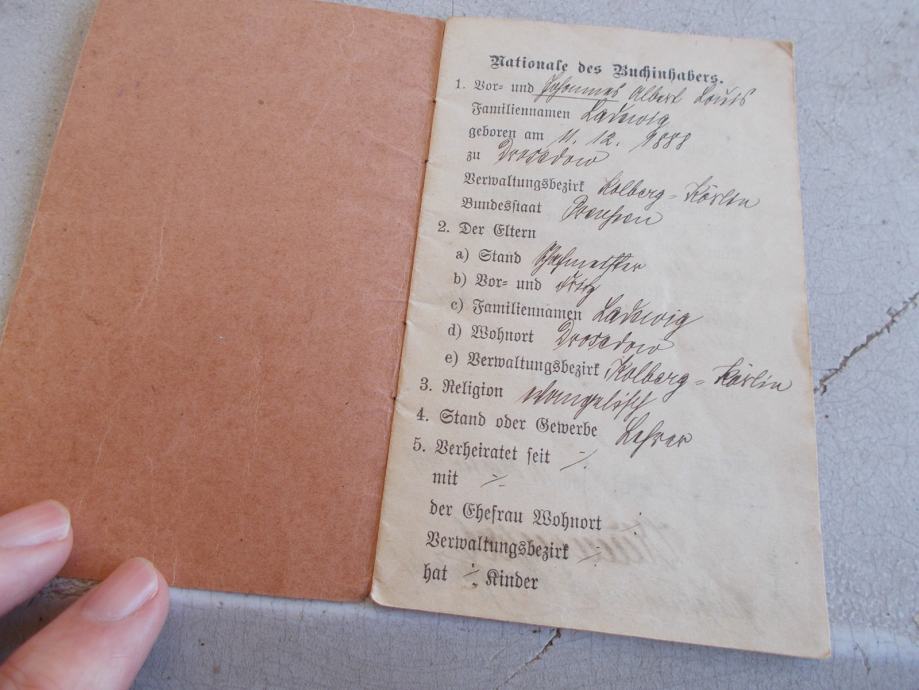 Nationale des Buchinhabers.
1. Vor- und Johannes Albert Louis
Familiennamen Ladewig
geboren am 11. 12. 1888
zu Drosedow
Verwaltungsbezirk Kolberg-Körlin
Bundesstaat Preußen
2. Der Eltern
a) Stand
b) Vor- und Fritz
c) Familiennamen Ladewig
d) Wohnort Drosedow
e) Verwaltungsbezirk Kolberg-Körlin
3. Religion evangelisch
4. Stand oder Gewerbe Lehrer
5. Verheiratet seit ./.
mit ./.
der Ehefrau Wohnort ./.
Verwaltungsbezirk ./.
hat ./. Kinder